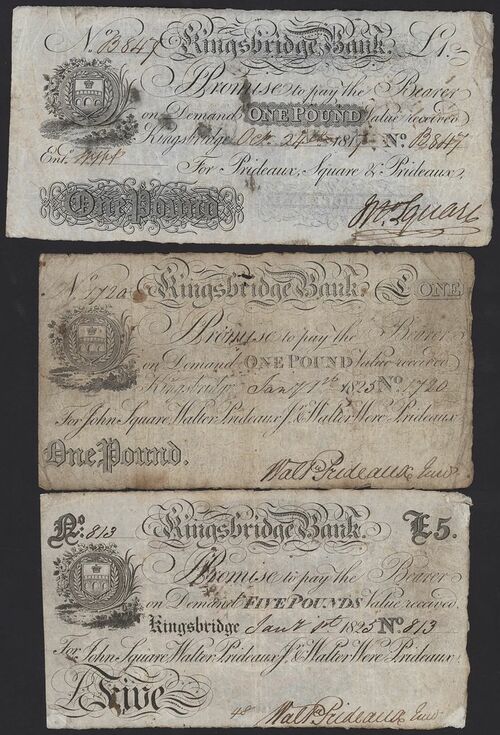 No. B847 Kingsbridge Bank. £1.
I Promise to pay the Bearer
on Demand ONE POUND Value received
Kingsbridge Oct. 24th 1817 No. B847
Ent.
For Prideaux, Square & Prideaux,
One Pound
Wm. Square
No. 1720 Kingsbridge Bank. £ ONE
I Promise to pay the Bearer
on Demand ONE POUND Value received
Kingsbridge Jany 1st 1825 No. 1720
For John Square, Walter Prideaux Jr. & Walter Were Prideaux
One Pound.
Walr Prideaux Junr
No. 813 Kingsbridge Bank. £5.
I Promise to pay the Bearer
on Demand FIVE POUNDS Value received.
Kingsbridge Jany 1st 1825 No. 813
For John Square, Walter Prideaux Jr. & Walter Were Prideaux
£ Five
48 Walr Prideaux Junr